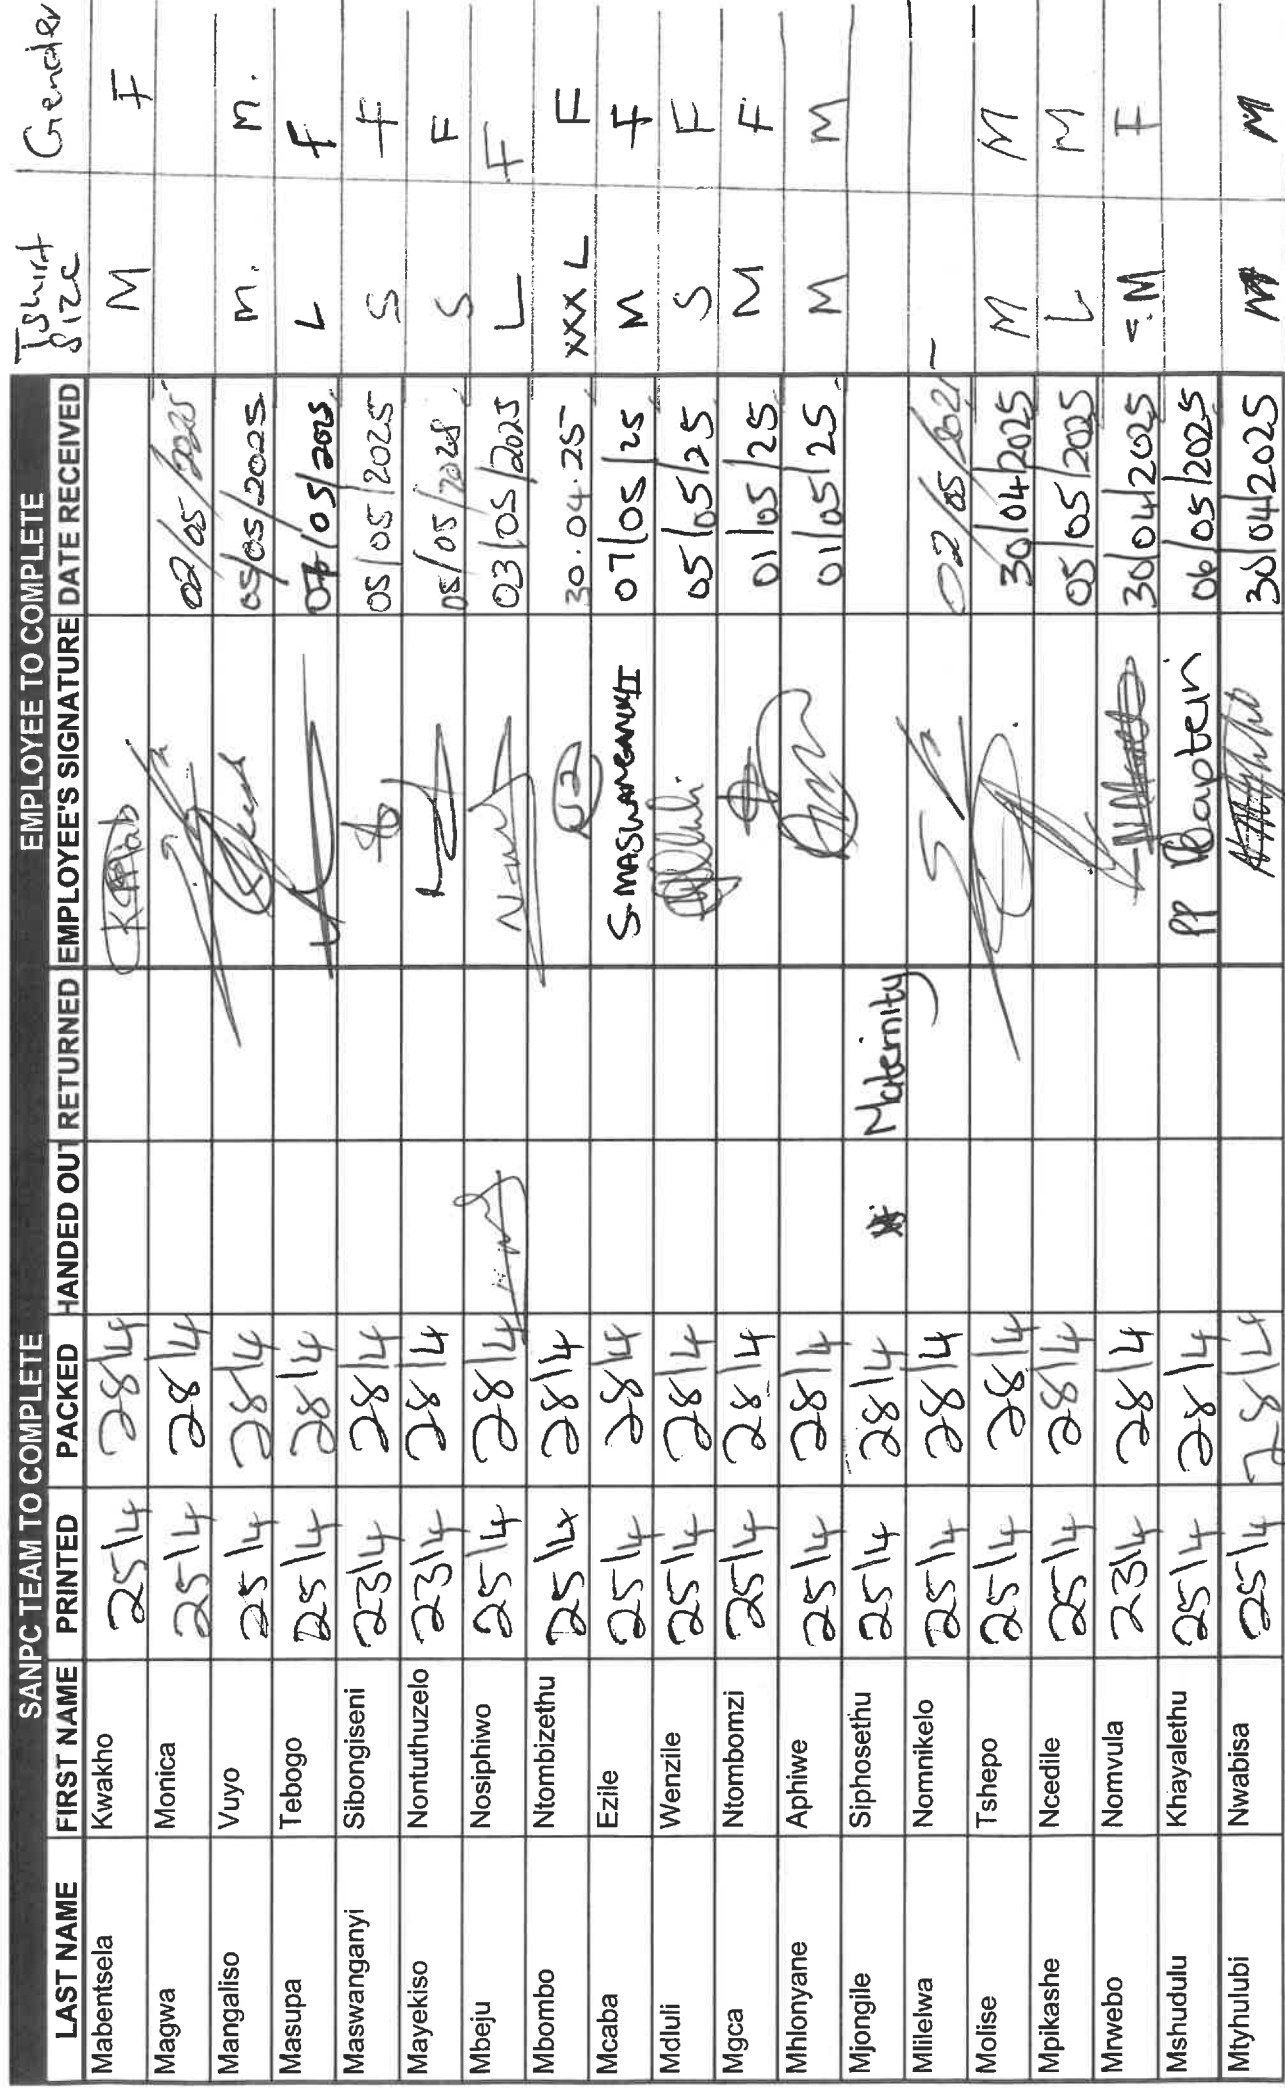 SANPC TEAM TO COMPLETE EMPLOYEE TO COMPLETE
LAST NAME FIRST NAME PRINTED PACKED HANDED OUT RETURNED EMPLOYEE'S SIGNATURE DATE RECEIVED Tshirt Size Gender
Mabentsela Kwakho 25/4 28/4 M F
Magwa Monica 25/4 28/4 02/05/2025
Mangaliso Vuyo 25/4 28/4 05/05/2025 m. m.
Masupa Tebogo 25/4 28/4 /05/2025 L F
Maswanganyi Sibongiseni 23/4 28/4 05/05/2025 S F
Mayekiso Nontuthuzelo 23/4 28/4 05/05/2025 S F
Mbeju Nosiphiwo 25/4 28/4 03/05/2025 L F
Mbombo Ntombizethu 25/4 28/4 30.04.25 XXXL F
Mcaba Ezile 25/4 28/4 S.MASWANGANYI 07/05/25 M F
Mdluli Wenzile 25/4 28/4 05/05/25 S F
Mgca Ntombomzi 25/4 28/4 01/05/25 M F
Mhlonyane Aphiwe 25/4 28/4 01/05/25 M M
Mjongile Siphosethu 25/4 28/4 Maternity
Mlilelwa Nomnikelo 25/4 28/4 02/05/202
Molise Tshepo 25/4 28/4 30/04/2025 M M
Mpikashe Ncedile 25/4 28/4 05/05/2025 L M
Mrwebo Nomvula 23/4 28/4 30/04/2025 M F
Mshudulu Khayalethu 25/4 28/4 PP 06/05/2025
Mtyhulubi Nwabisa 25/4 28/4 30/04/2025 M M